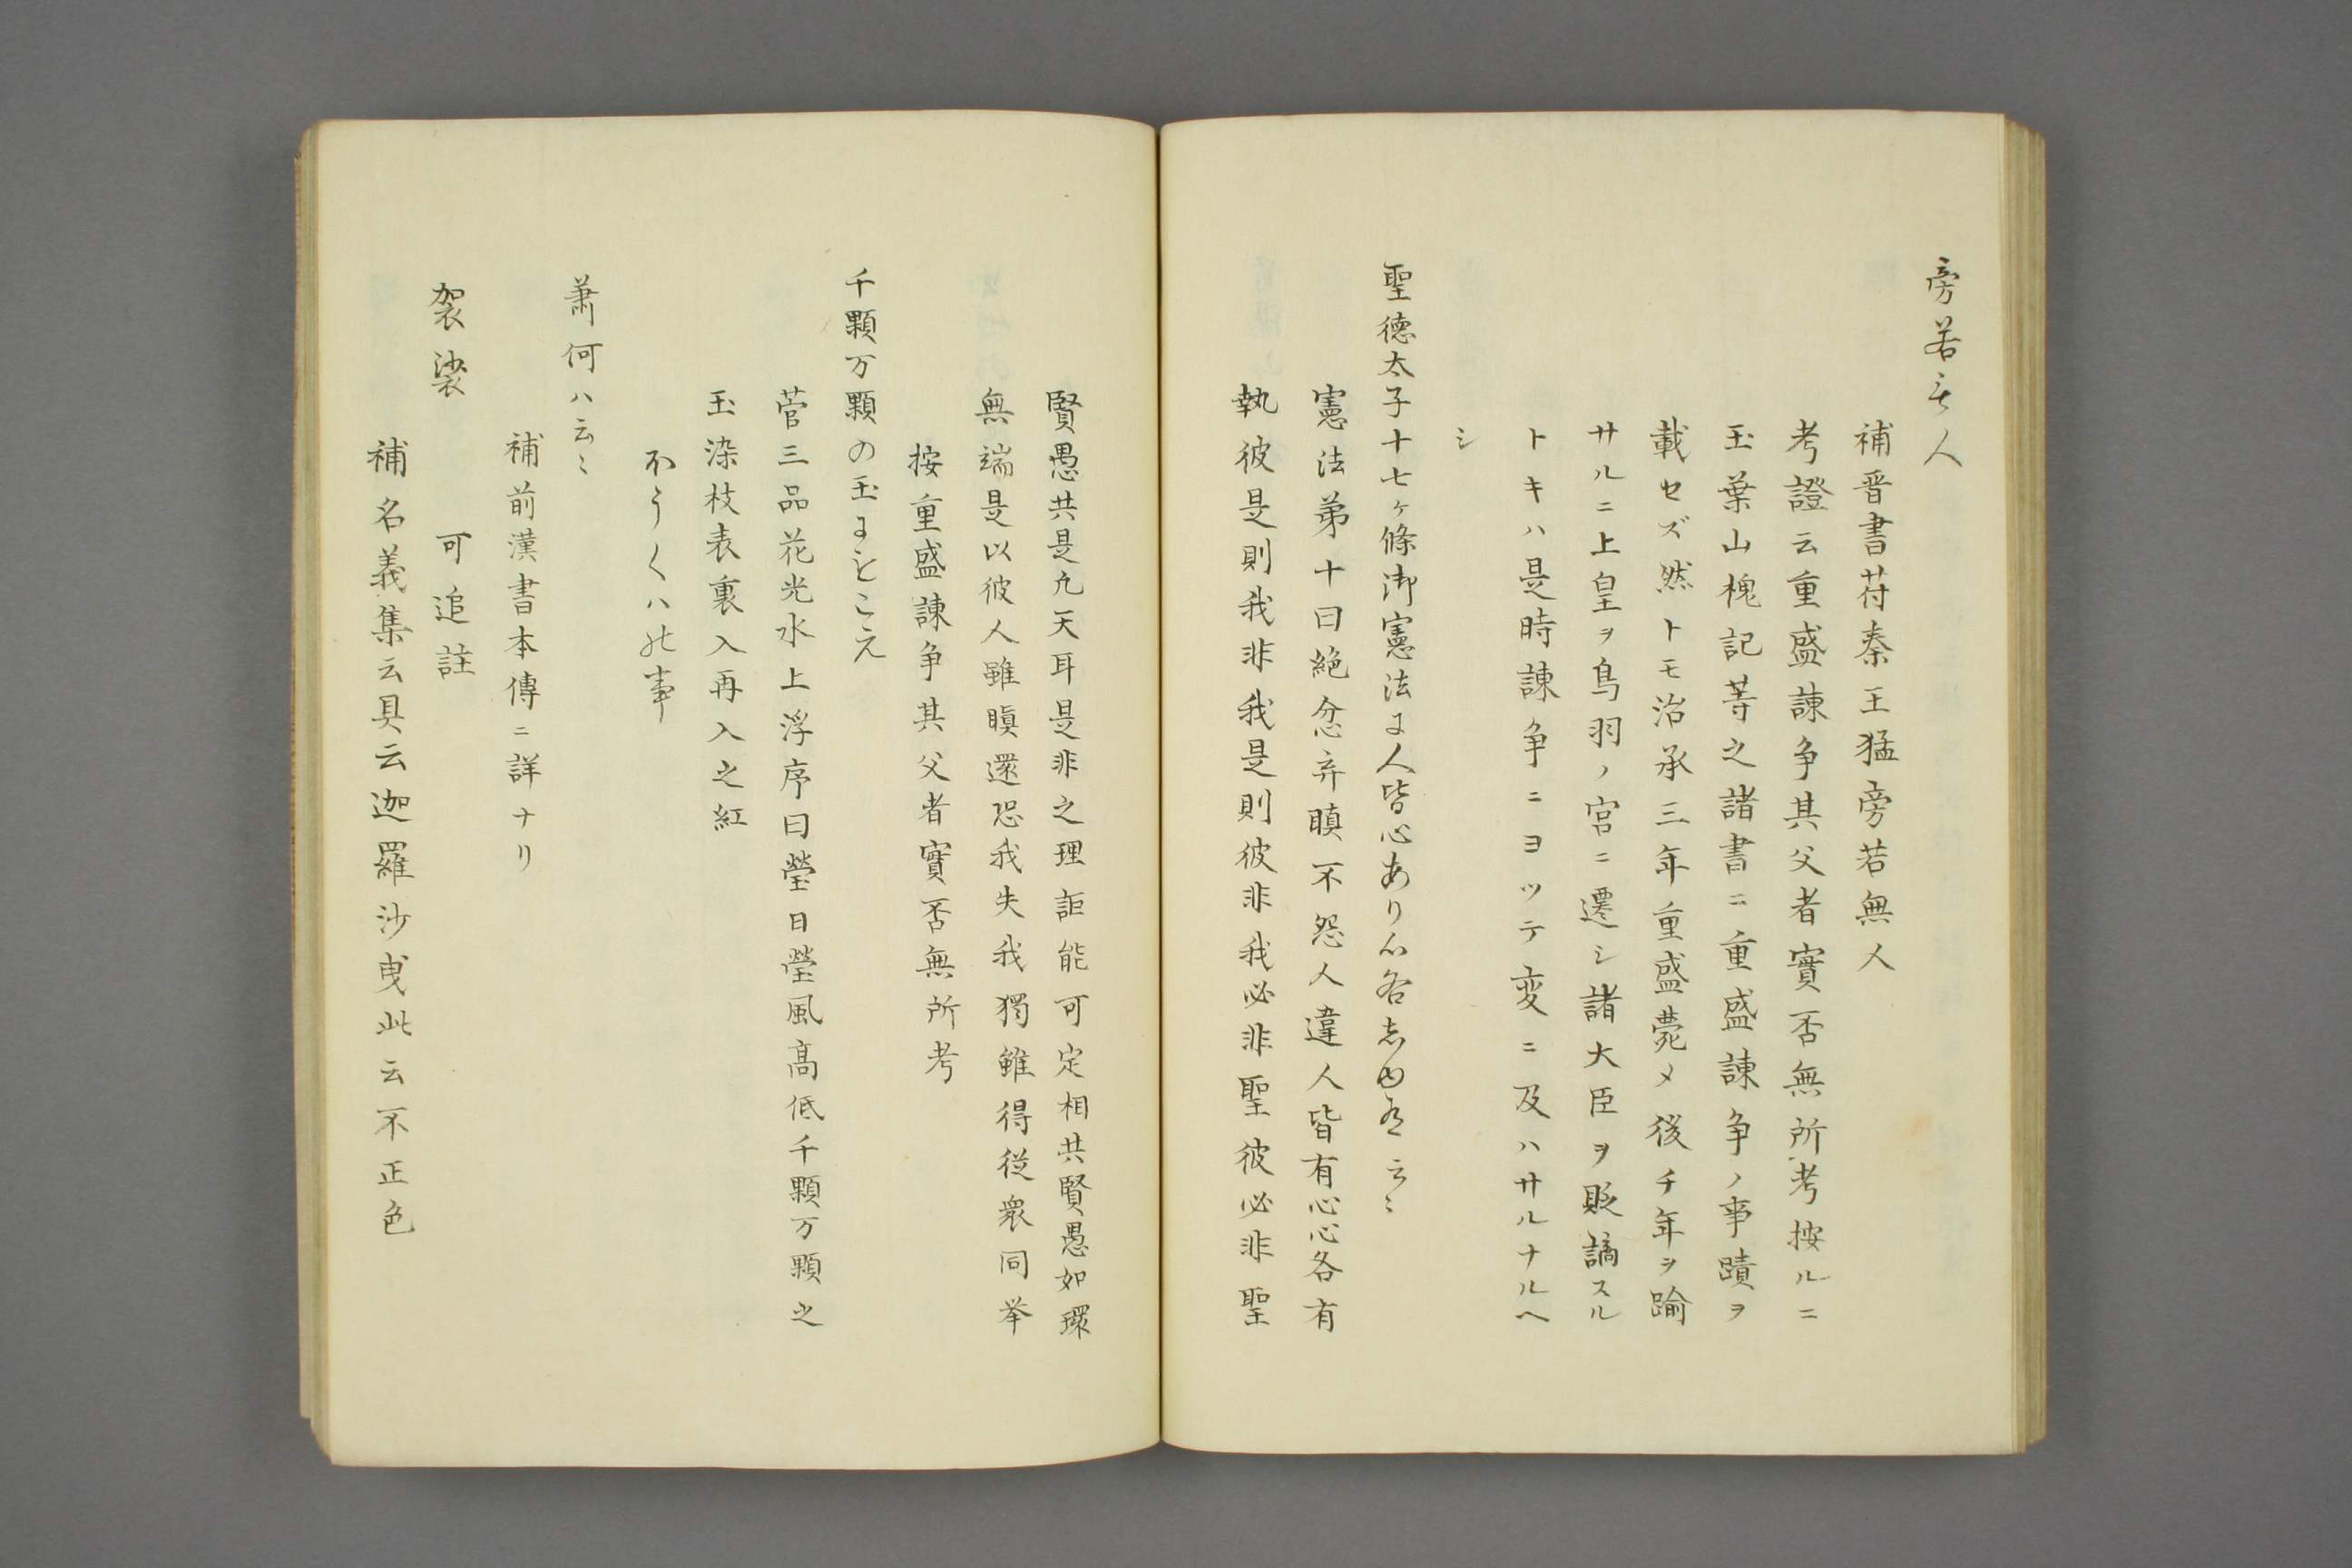 旁若无人
補晋書苻秦王猛旁若無人
考證云重盛諫争其父者實否無所考按ルニ
玉葉山槐記等之諸書ニ重盛諫争ノ事蹟ヲ
載セズ然トモ治承三年重盛薨メ後チ年ヲ踰
サルニ上皇ヲ鳥羽ノ宮ニ遷シ諸大臣ヲ貶謫スル
トキハ是時諫争ニヨツテ変ニ及ハサルナルヘ
シ
聖徳太子十七ヶ條御憲法に人皆心あり心各志
憲法第十曰絶忿弃瞋不怨人違人皆有心心各有
執彼是則我非我是則彼非我必非聖彼必非聖
賢愚共是凢天耳是非之理詎能可定相共賢愚如環
無端是以彼人雖瞋還恐我失我獨雖得從衆同挙
按重盛諫争其父者實否無所考
千顆万顆の玉にもこえ
菅三品花光水上浮序曰瑩日瑩風髙低千顆万顆之
玉染枝表裏入再入之紅
蕭何ハ云〻
補前漢書本傳ニ詳ナリ
袈裟　可追註
補名義集云具云迦羅沙曳此云不正色